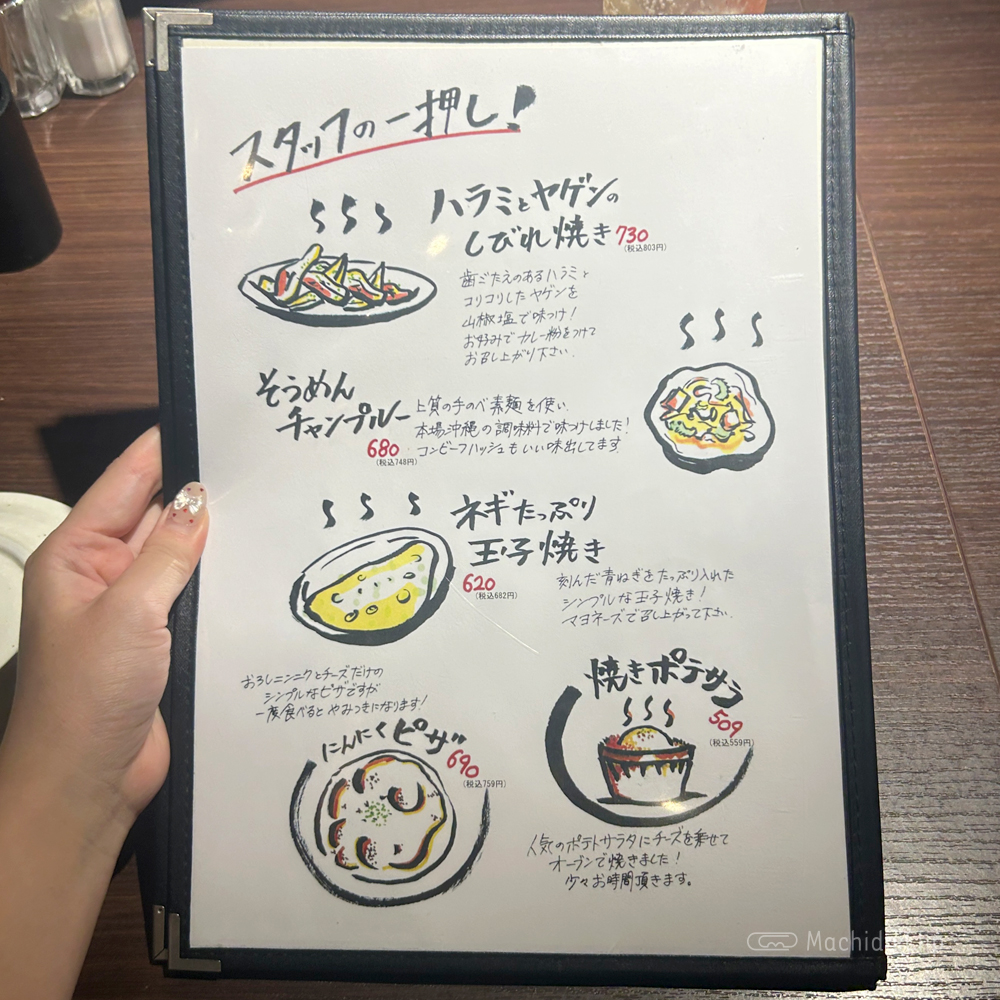 スタッフの一押し!
ハラミとヤゲンの
しびれ焼き 730
(税込803円)
歯ごたえのあるハラミと
コリコリしたヤゲンを
山椒塩で味つけ!
お好みでカレー粉をつけて
お召し上がり下さい.
そうめん
チャンプルー
680
(税込748円)
上質の手のべ素麺を使い.
本場沖縄の調味料で味つけしました!
コンビーフハッシュもいい味出してます.
ネギたっぷり
玉子焼き
620
(税込682円)
刻んだ青ねぎをたっぷり入れた
シンプルな玉子焼き!
マヨネーズで召し上がって下さい.
おろしニンニクとチーズだけの
シンプルなピザですが
一度食べるとやみつきになります!
にんにくピザ
690
(税込759円)
焼きポテサラ
509
(税込559円)
人気のポテトサラダにチーズを乗せて
オーブンで焼きました!
少々お時間頂きます。